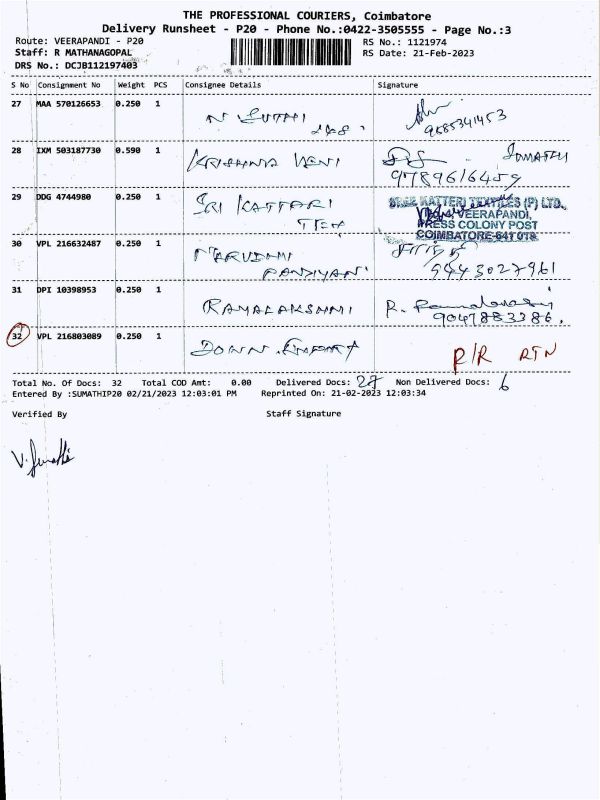 THE PROFESSIONAL COURIERS, Coimbatore
Delivery Runsheet - P20 - Phone No.:0422-3505555 - Page No.:3
Route: VEERAPANDI - P20
Staff: R MATHANAGOPAL
DRS No.: DCJB112197403
RS No.: 1121974
RS Date: 21-Feb-2023
S No Consignment No Weight PCS Consignee Details Signature
27 MAA 570126653 0.250 1
9685341453
28 IXM 503187730 0.590 1 KRISHNA VENI
9789616459
29 DDG 4744980 0.250 1 SRI KATTARI
TEX
SREE KATTERI TEXTILES (P) LTD.,
VEERAPANDI,
PRESS COLONY POST
COIMBATORE-641 019.
30 VPL 216632487 0.250 1
PANDIYAN
9443027961
31 DPI 10398953 0.250 1 RAMALAKSHMI R.
9047883386.
32 VPL 216803089 0.250 1 R/R RTN
Total No. Of Docs: 32 Total COD Amt: 0.00 Delivered Docs: 27 Non Delivered Docs: 6
Entered By :SUMATHIP20 02/21/2023 12:03:01 PM Reprinted On: 21-02-2023 12:03:34
Verified By Staff Signature